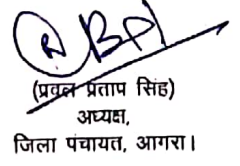 (प्रवल प्रताप सिंह)
अध्यक्ष,
जिला पंचायत, आगरा।